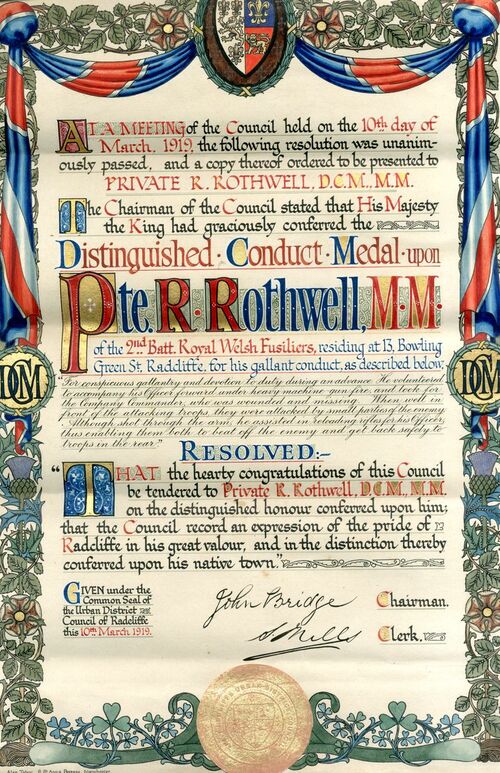 AT A MEETING of the Council held on the 10th day of
March, 1919, the following resolution was unanim-
ously passed, and a copy thereof ordered to be presented to
PRIVATE R. ROTHWELL, D.C.M., M.M.
The Chairman of the Council stated that His Majesty
the King had graciously conferred the
Distinguished · Conduct · Medal · upon
Pte. R. Rothwell, M.M.
of the 2nd Batt. Royal Welsh Fusiliers, residing at 13, Bowling
Green St. Radcliffe, for his gallant conduct, as described below:
DCM
DCM
"For conspicuous gallantry and devotion to duty during an advance. He volunteered
to accompany his Officer forward under heavy machine gun fire, to find
the Company Commander, who was wounded and missing. When well in
front of the attacking troops they were attacked by small parties of the enemy.
Although shot through the arm, he assisted in reloading rifles for his Officer,
thus enabling them both to beat off the enemy and get back safely to
troops in the rear."
RESOLVED:-
"THAT the hearty congratulations of this Council
be tendered to Private R. Rothwell, D.C.M., M.M.
on the distinguished honour conferred upon him;
that the Council record an expression of the pride of
Radcliffe in his great valour, and in the distinction thereby
conferred upon his native town."
GIVEN under the
Common Seal of
the Urban District
Council of Radcliffe
this 10th March 1919.
John Bridge Chairman.
S Mills Clerk.